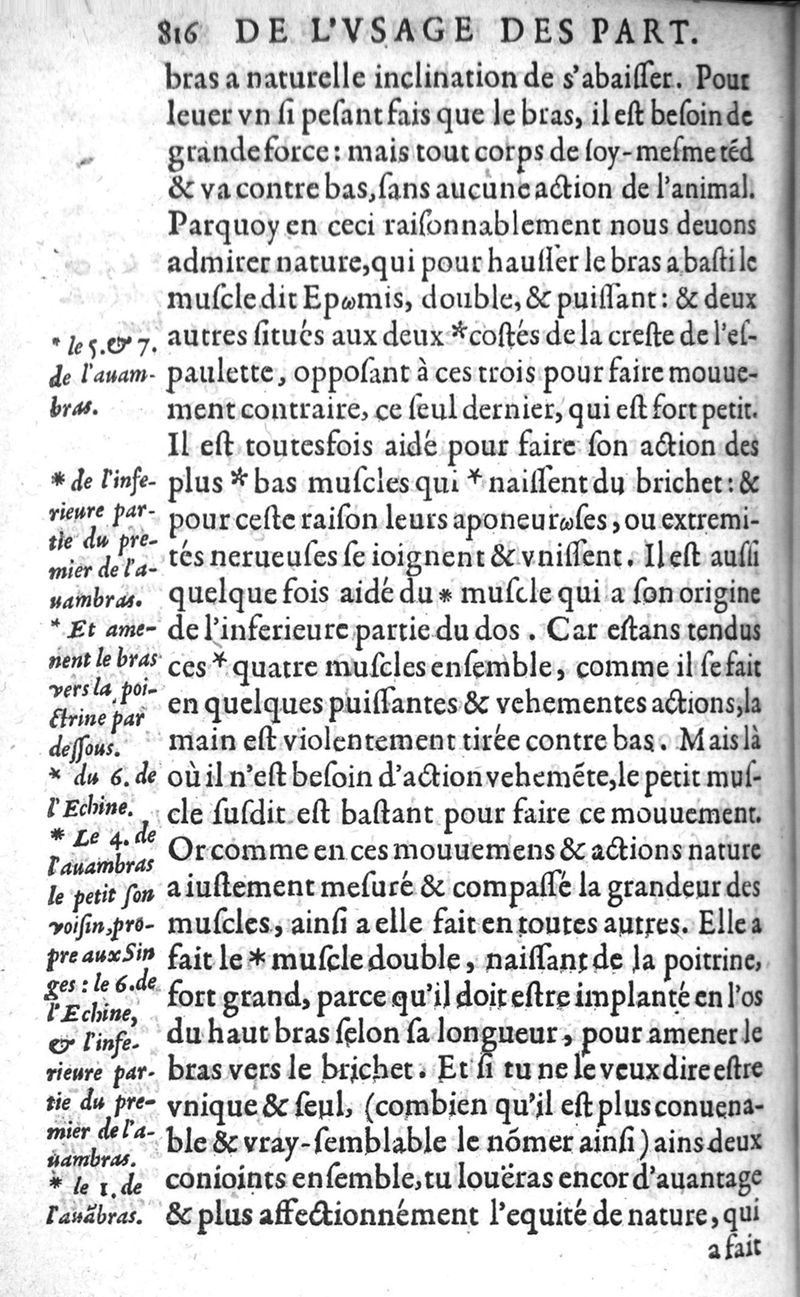 816 DE L'VSAGE DES PART.
bras a naturelle inclination de s'abaiſſer. Pour
leuer vn ſi peſant fais que le bras, il eſt beſoin de
grande force: mais tout corps de ſoy-meſme tẽd
& va contre bas, ſans aucune action de l'animal.
Parquoy en ceci raiſonnablement nous deuons
admirer nature, qui pour hauſſer le bras a baſti le
muſcle dit Epωmis, double, & puiſſant: & deux
autres ſitués aux deux *coſtés de la creſte de l'eſ-
paulette, oppoſant à ces trois pour faire mouue-
ment contraire, ce ſeul dernier, qui eſt fort petit.
Il eſt toutesfois aidé pour faire ſon action des
plus * bas muſcles qui * naiſſent du brichet: &
pour ceſte raiſon leurs aponeurωſes, ou extremi-
tés nerueuſes ſe ioignent & vniſſent. Il eſt auſſi
quelque fois aidé du * muſcle qui a ſon origine
de l'inferieure partie du dos. Car eſtans tendus
ces * quatre muſcles enſemble, comme il ſe fait
en quelques puiſſantes & vehementes actions, la
main eſt violentement tirée contre bas. Mais là
où il n'eſt beſoin d'action vehemẽte, le petit muſ-
cle ſuſdit eſt baſtant pour faire ce mouuement.
Or comme en ces mouuemens & actions nature
a iuſtement meſuré & compaſſé la grandeur des
muſcles, ainſi a elle fait en toutes autres. Elle a
fait le * muſcle double, naiſſant de la poitrine,
fort grand, parce qu'il doit eſtre implanté en l'os
du haut bras ſelon ſa longueur, pour amener le
bras vers le brichet. Et ſi tu ne le veux dire eſtre
vnique & ſeul, (combien qu'il eſt plus conuena-
ble & vray-ſemblable le nõmer ainſi) ains deux
conioints enſemble, tu louëras encor d'auantage
& plus affectionnément l'equité de nature, qui
a fait
* le 5. & 7.
de l'auam-
bras.
* de l'infe-
rieure par-
tie du pre-
mier de l'a-
uambras.
* Et ame-
nent le bras
vers la poi-
ctrine par
deſſous.
* du 6. de
l'Echine.
* Le 4. de
l'auambras
le petit ſon
voiſin, pro-
pre aux Sin
ges: le 6. de
l'Echine,
& l'infe-
rieure par-
tie du pre-
mier de l'a-
uambras.
* le 1. de
l'auãbras.